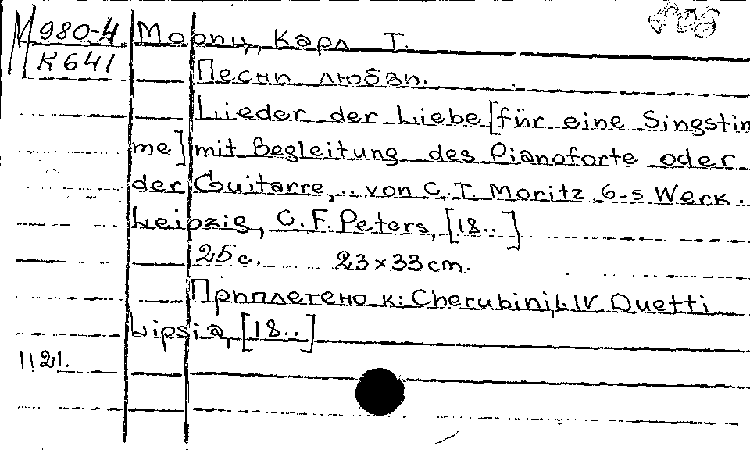 М 980-4
К 641
Мориц, Карл Т.
Песни любви.
Lieder der Liebe [für eine Singstim
me] mit Begleitung des Pianoforte oder
der Guitarre,.. von C. T. Moritz 6-s Werk.
Leipzig, C. F. Peters, [18..]
25 с. 23×33 cm.
Приплетено к: Cherubini, L. IV Duetti
Lipsia, [18..]
1121.